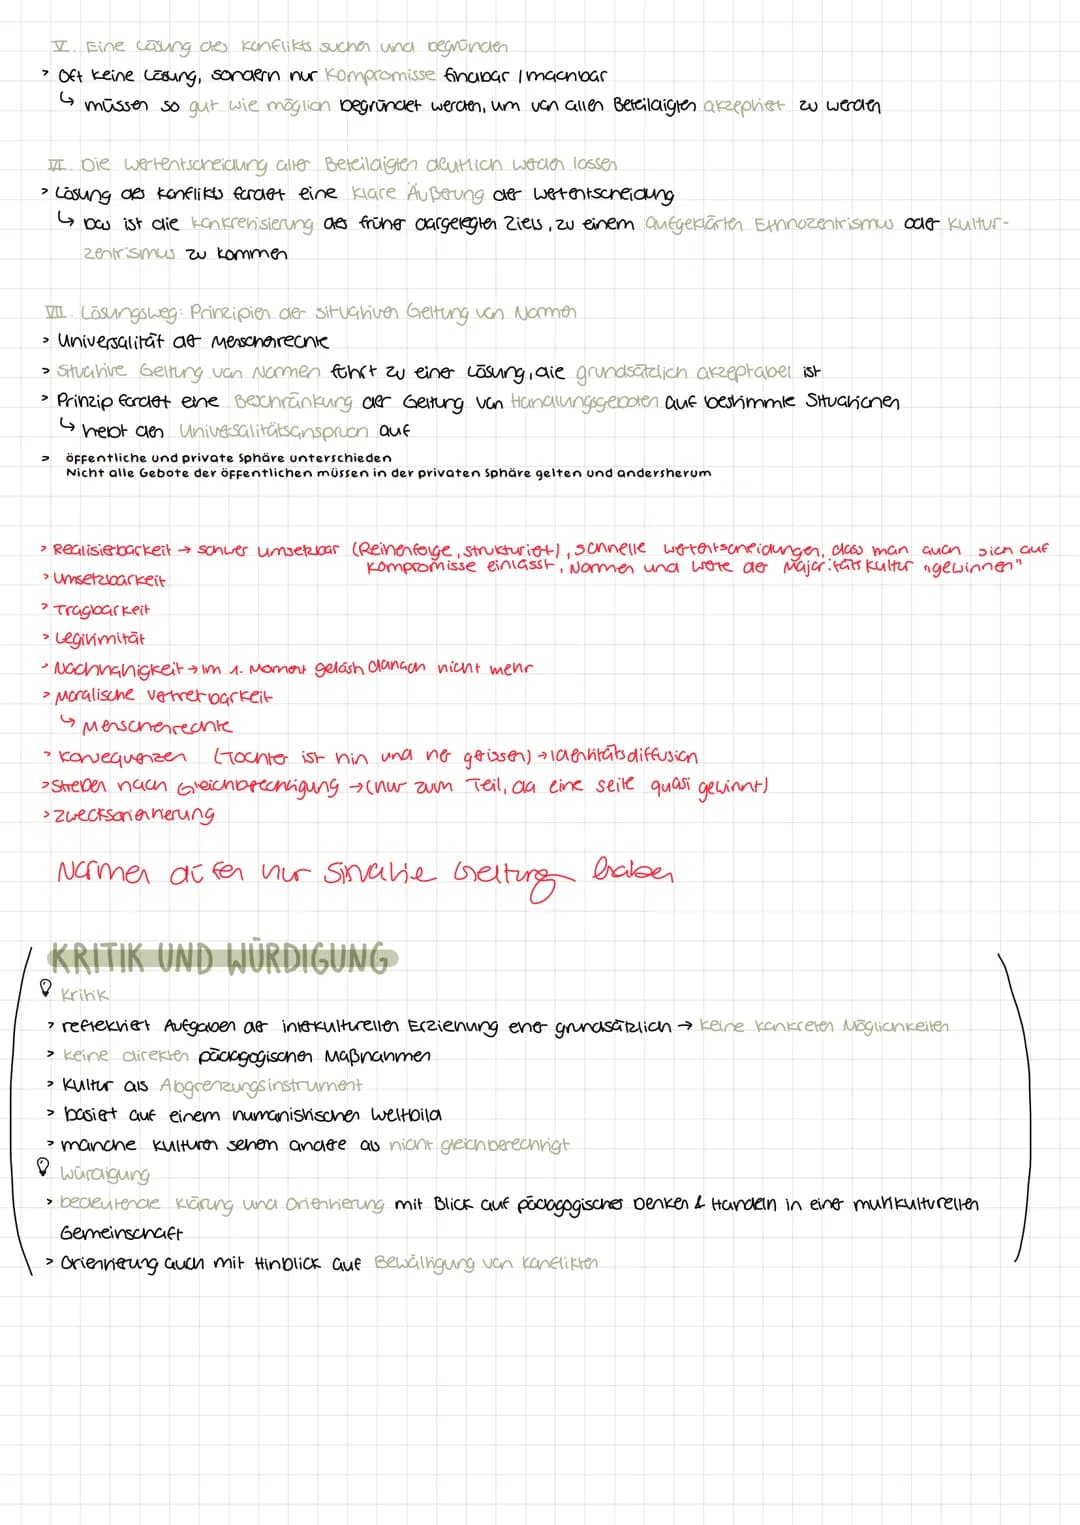 V. Eine Lösung des Konflikts suchen und begründen
> Oft keine Lösung, sondern nur Kompromisse findbar / machbar
↳ müssen so gut wie möglich begründet werden, um von allen Beteiligten akzeptiert zu werden
VI. Die Wertentscheidung aller Beteiligten deutlich werden lassen
> Lösung des Konflikts fordert eine klare Äußerung der Wertentscheidung
↳ Das ist die Konkretisierung des früher dargelegten Ziels, zu einem aufgeklärten Ethnozentrismus oder Kultur-
zentrismus zu kommen
VII. Lösungsweg: Prinzipien der situativen Geltung von Normen
> Universalität der Menschenrechte
> Situative Geltung von Normen führt zu einer Lösung, die grundsätzlich akzeptabel ist
> Prinzip fordert eine Beschränkung der Geltung von Handlungsgeboten auf bestimmte Situationen
↳ hebt den Universalitätsanspruch auf
> öffentliche und private Sphäre unterschieden
Nicht alle Gebote der öffentlichen müssen in der privaten Sphäre gelten und andersherum
> Realisierbarkeit → schwer umsetzbar (Reihenfolge, strukturiert), schnelle Wertentscheidungen, dass man auch sich auf
Kompromisse einlässt, Normen und Werte der Majoritätskultur "gewinnen"
> Umsetzbarkeit
> Tragbarkeit
> Legitimität
> Nachhaltigkeit → im 1. Moment gelöst danach nicht mehr
> Moralische Vertretbarkeit
↳ Menschenrechte
> Konsequenzen (Tochter ist hin und her gerissen) → Identitätsdiffusion
> Streben nach Gleichberechtigung → (nur zum Teil, da eine Seite quasi gewinnt)
> Zwecksorientierung
Normen dürfen nur situative Geltung haben
KRITIK UND WÜRDIGUNG
Kritik
> reflektiert Aufgaben der interkulturellen Erziehung eher grundsätzlich → keine konkreten Möglichkeiten
> keine direkten pädagogischen Maßnahmen
> Kultur als Abgrenzungsinstrument
> basiert auf einem humanistischen Weltbild
> manche Kulturen sehen andere als nicht gleichberechtigt
Würdigung
> bedeutende Klärung und Orientierung mit Blick auf pädagogisches Denken & Handeln in einer multikulturellen
Gemeinschaft
> Orientierung auch mit Hinblick auf Bewältigung von Konflikten